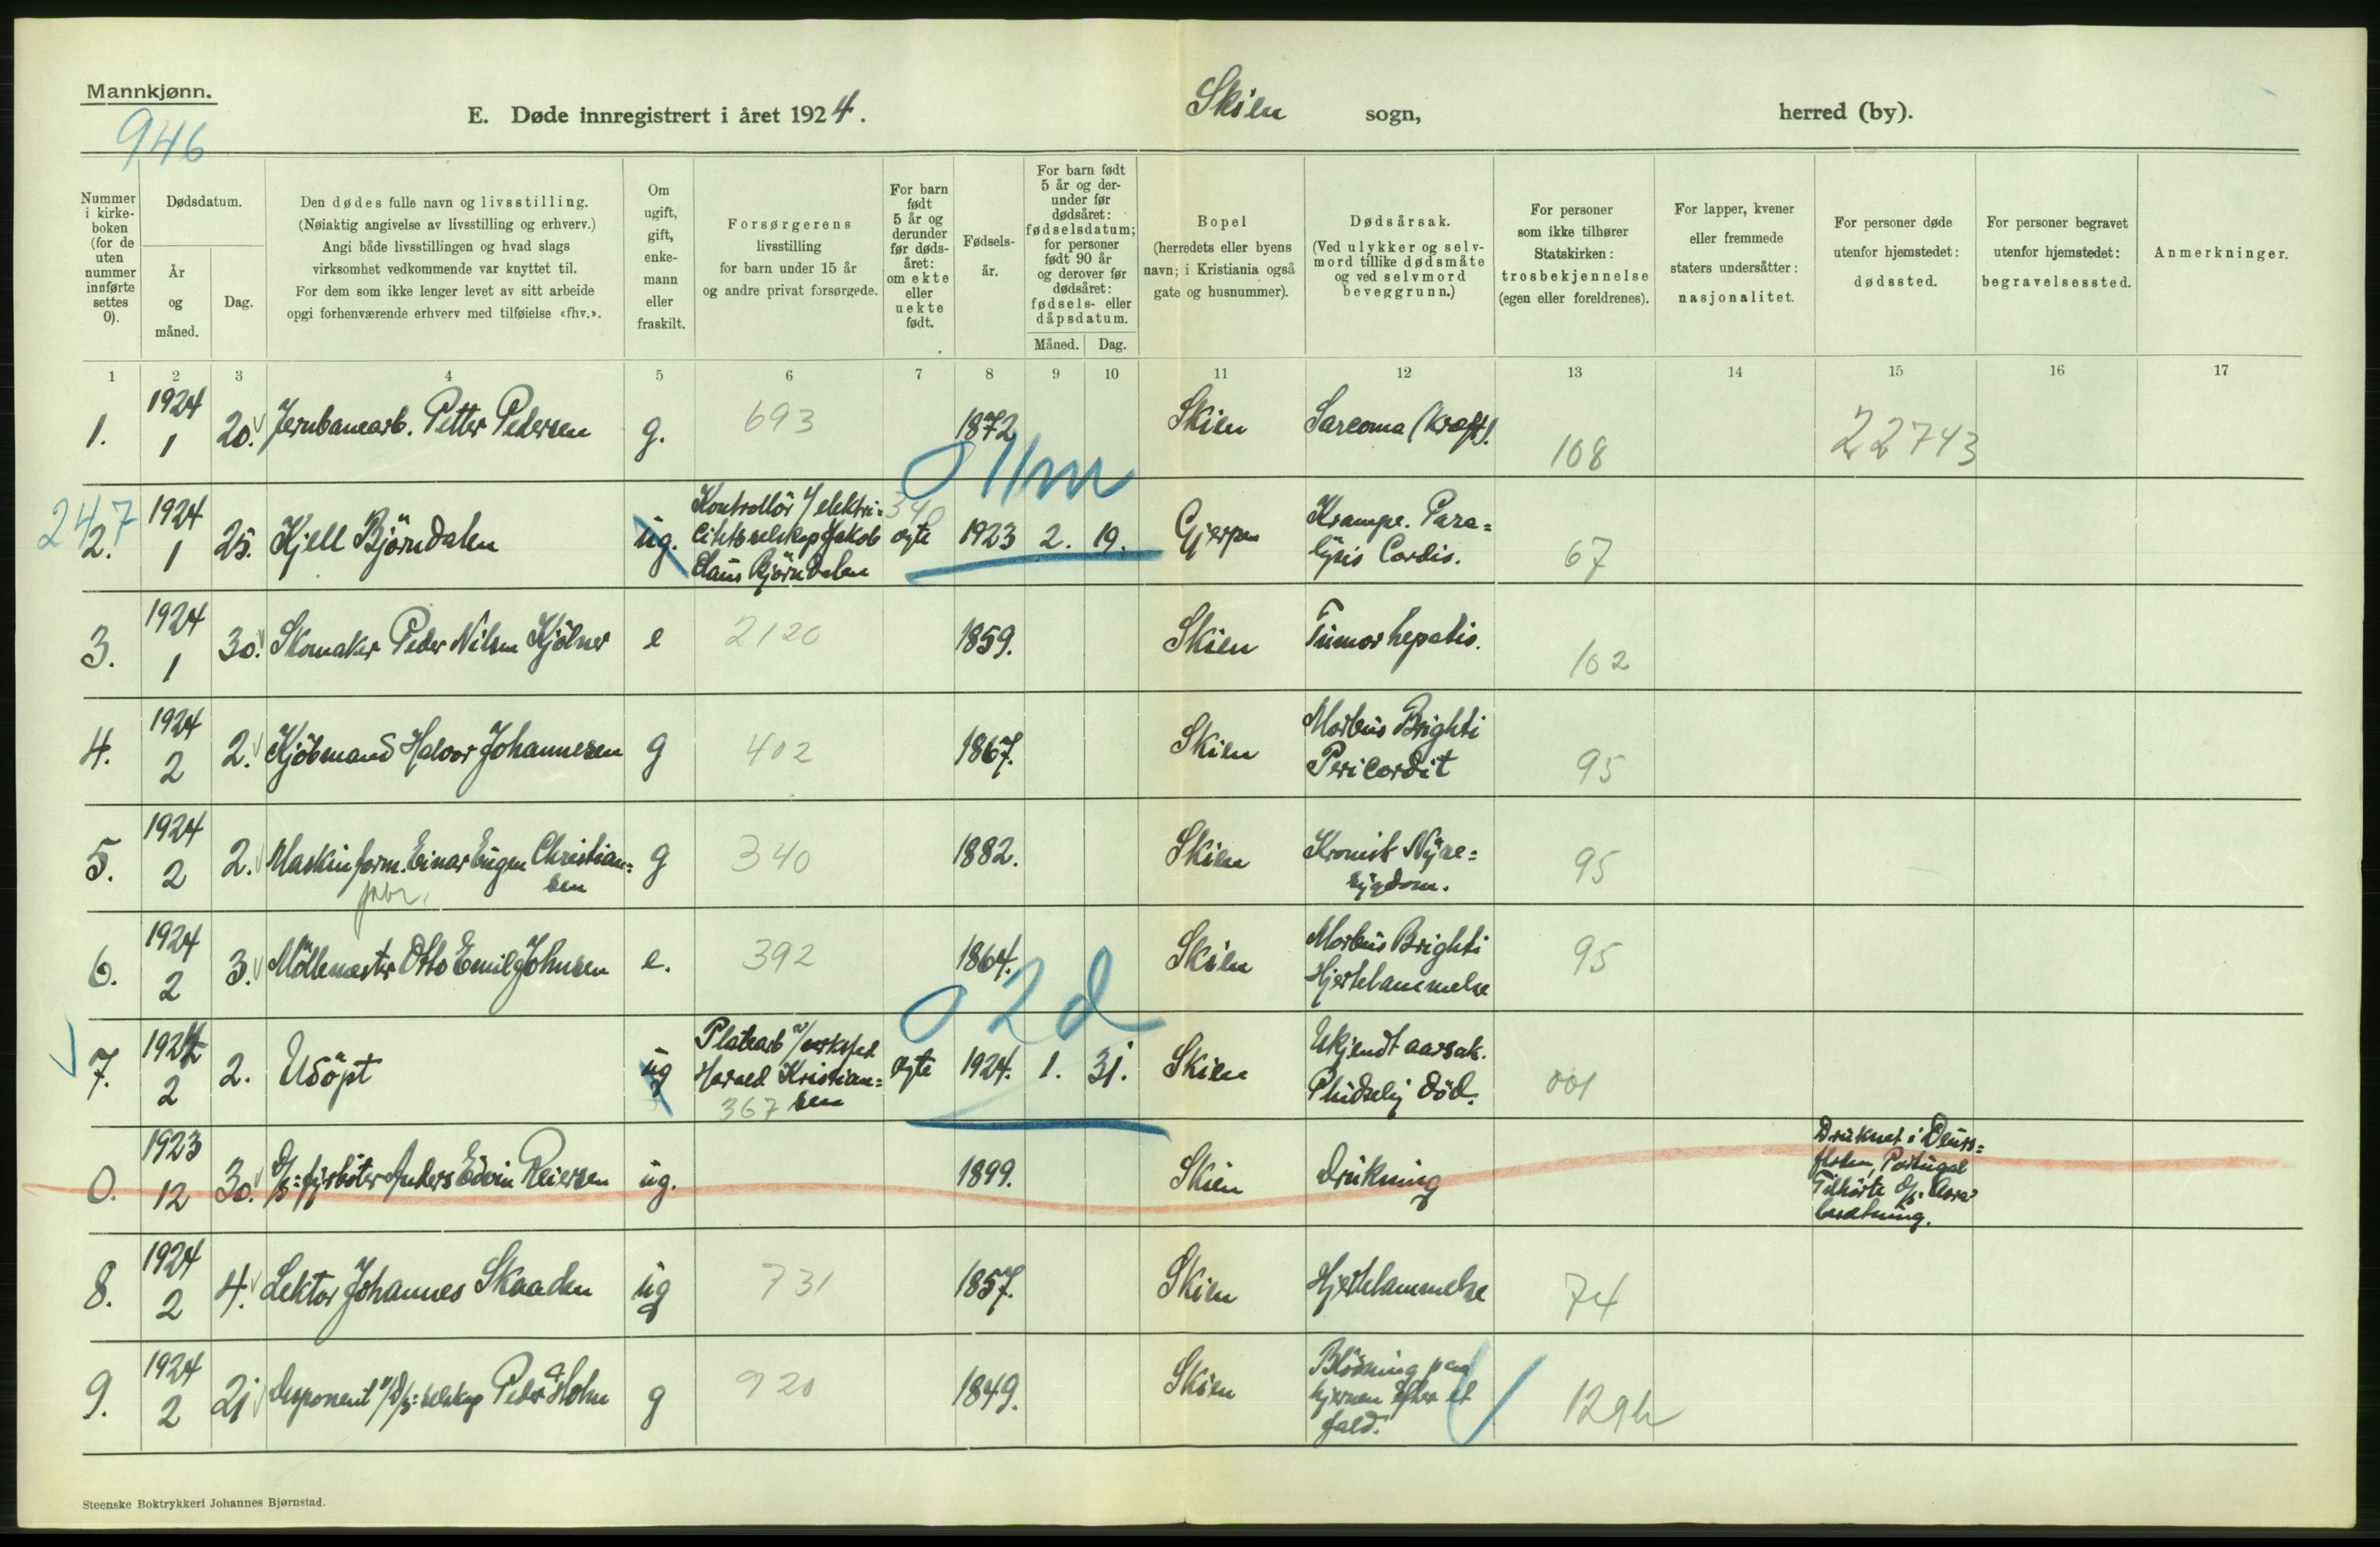 Mannkjønn.
946
E. Døde innregistrert i året 1924.
Skien sogn,
herred (by).
Nummer
i kirke-
boken
(for de
uten
nummer
innførte
settes
0).
Dødsdatum.
År
og
måned.
Dag.
Den dødes fulle navn og livsstilling.
(Nøiaktig angivelse av livsstilling og erhverv.)
Angi både livsstillingen og hvad slags
virksomhet vedkommende var knyttet til.
For dem som ikke lenger levet av sitt arbeide
opgi forhenværende erhverv med tilføielse «fhv.».
Om
ugift,
gift,
enke-
mann
eller
fraskilt.
Forsørgerens
livsstilling
for barn under 15 år
og andre privat forsørgede.
For barn
født
5 år og
derunder
før døds-
året:
om ekte
eller
uekte
født.
Fødsels-
år.
For barn født
5 år og der-
under før
dødsåret:
fødselsdatum;
for personer
født 90 år
og derover før
dødsåret:
fødsels- eller
dåpsdatum.
Måned.
Dag.
Bopel
(herredets eller byens
navn; i Kristiania også
gate og husnummer).
Dødsårsak.
(Ved ulykker og selv-
mord tillike dødsmåte
og ved selvmord
beveggrunn.)
For personer
som ikke tilhører
Statskirken:
trosbekjennelse
(egen eller foreldrenes).
For lapper, kvener
eller fremmede
staters undersåtter:
nasjonalitet.
For personer døde
utenfor hjemstedet:
dødssted.
For personer begravet
utenfor hjemstedet:
begravelsessted.
Anmerkninger.
1 2 3 4 5 6 7 8 9 10 11 12 13 14 15 16 17
1924
1. 1 20. Jernbanearb. Petter Pedersen g. 693 1872 Skien Sarcoma (kræft). 108 22743
0 11m
247
1924
2. 1 25. Kjell Björndalen ug.
Kontrollör v/ elektri-
citetsselskap Jakob
Claus Björndalen
340
ægte 1923 2. 19. Gjerpen
Krampe. Para=
lysis Cordis.
67
1924
3. 1 30. Skomaker Peder Nilsen Kjölner e 2120 1859. Skien Tumor hepatis. 102
1924
4. 2 2. Kjöbmand Halvor Johannesen g 402 1867. Skien
Morbus Brighti
Pericordit
95
1924
5. 2 2. Maskinform. Einar Eugen Christian=
sen
g 340 1882. Skien
Kronisk Nyre=
sygdom.
95
1924
6. 2 3. Möllemester Otto Emil Johnsen e. 392 1864. Skien
Morbus Brighti
Hjertelammelse
95
0 2d
1924
7. 2 2. Udöpt ug
Platearb v/ verksted
Harald Kristian=
sen
367
ægte 1924. 1. 31. Skien
Ukjendt aarsak.
Pludselig död.
001
1923
0. 12 30. D/s=fyrböter Anders Edvin Reiersen ug. 1899. Skien Drukning
Druknet i
floden, Portugal
Tilhörte D/s.
besætning.
1924
8. 2 4. Lektor Johannes Skaaden ug 731 1857. Skien Hjertelammelse 74
1924
9. 2 21 Disponent v/ D/s=selskap Peder A Holm g 920 1849. Skien
Blödning paa
hjernen efter et
fald.
129h
Steenske Boktrykkeri Johannes Bjørnstad.